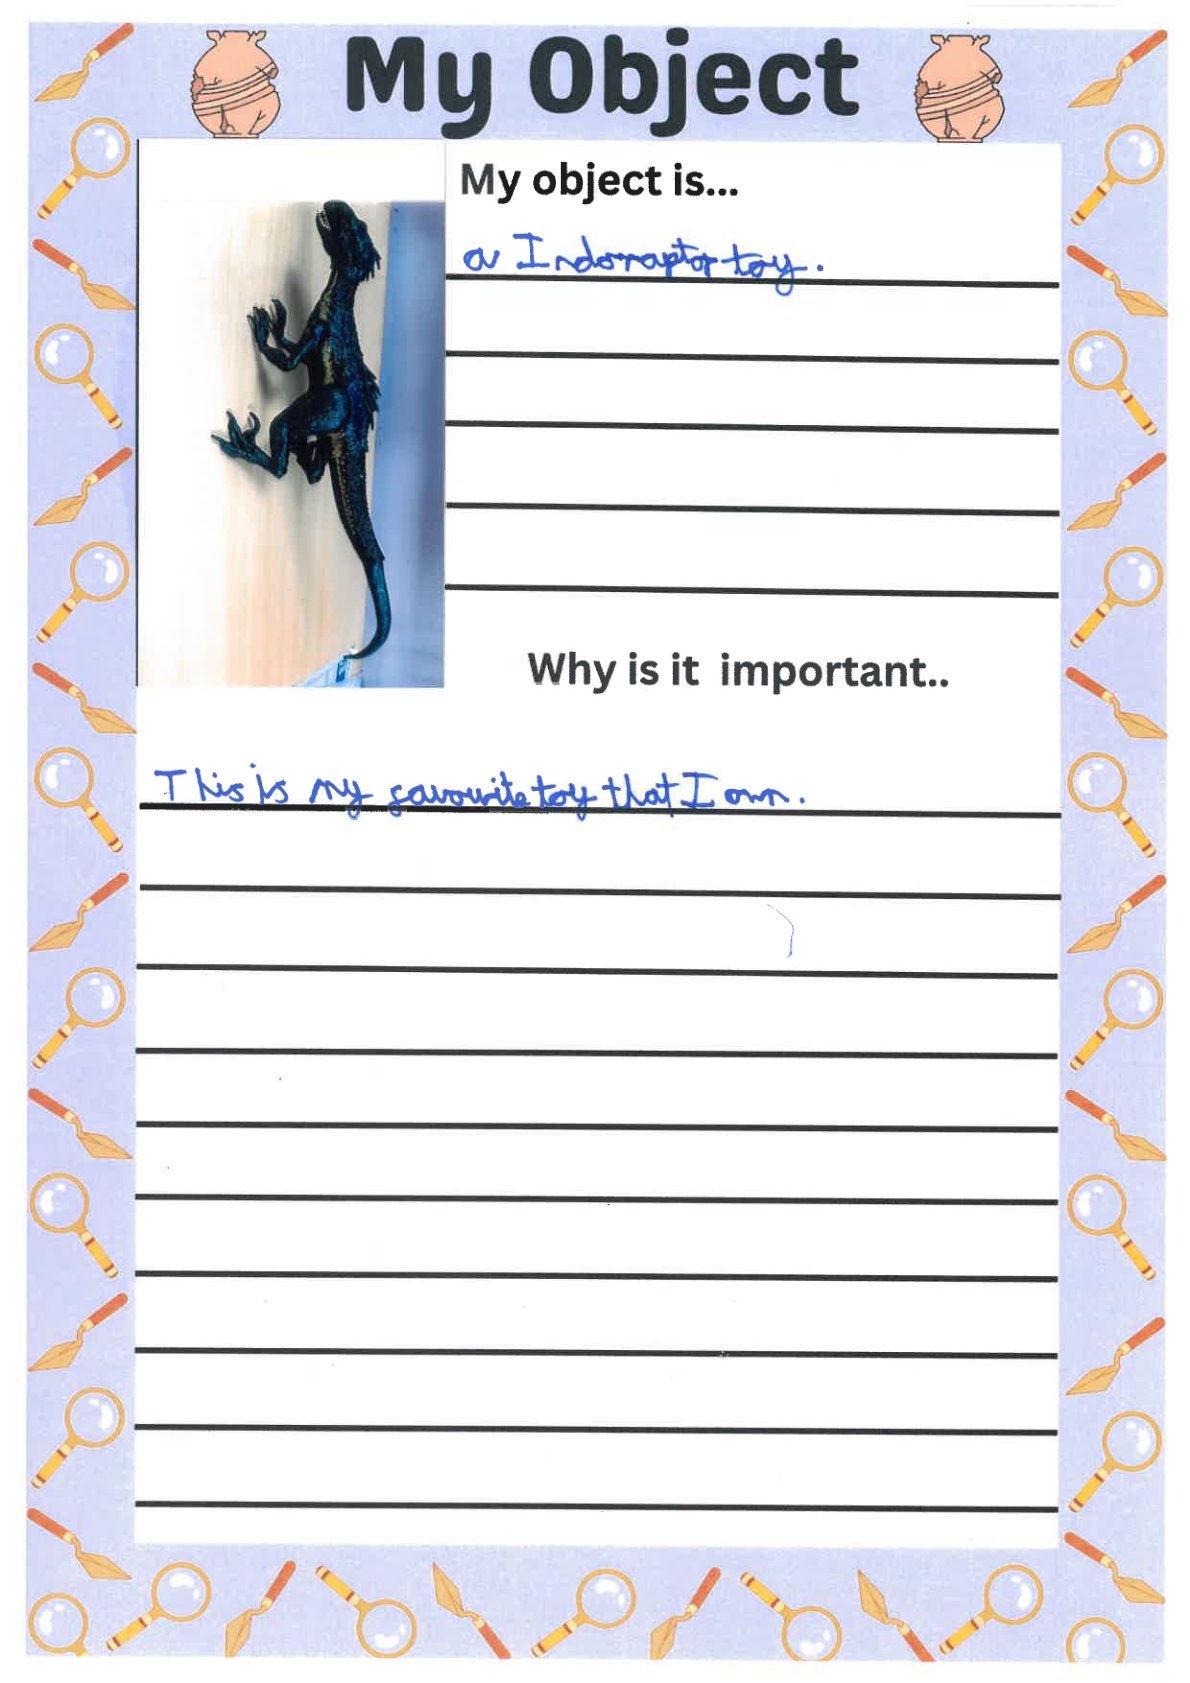 My Object
My object is...
a Indorraptor toy.
Why is it important..
This is my favourite toy that I own.